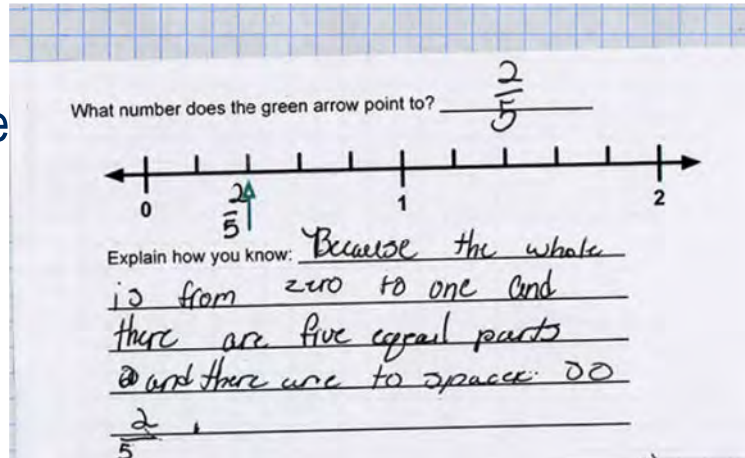 e
What number does the green arrow point to? 2/5
0 1 2
2/5
Explain how you know: Because the whole
is from zero to one and
there are five eqeail parts
and there are to spaces so
2/5 .